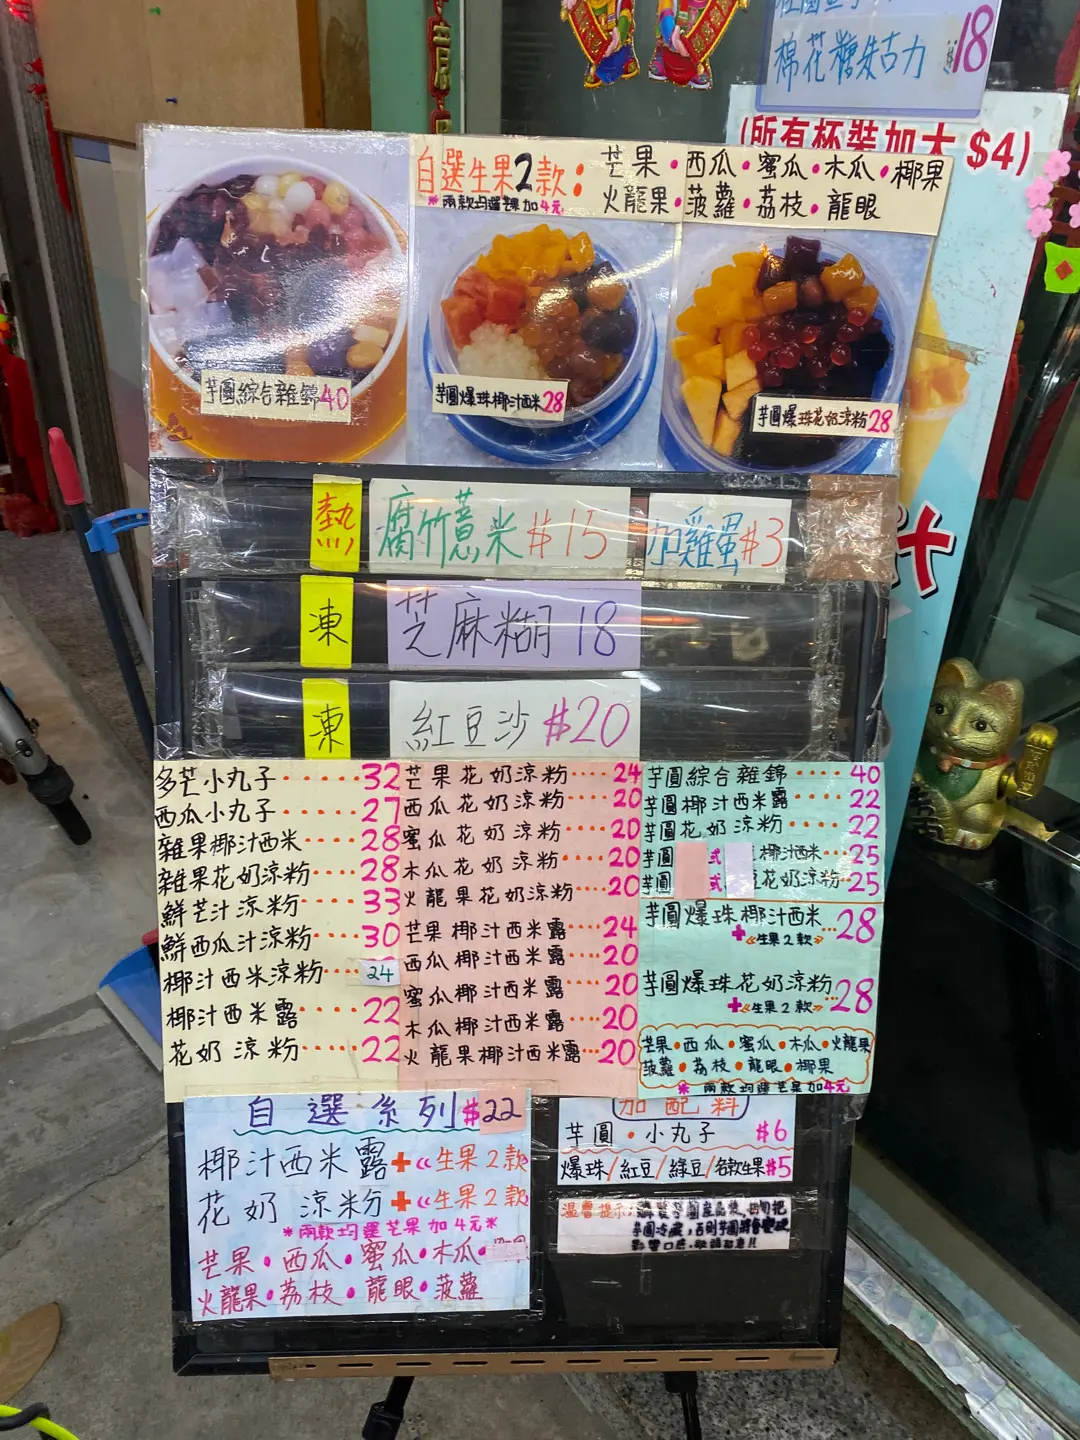 棉花糖朱古力 18
(所有杯裝加大 $4)
自選生果2款: 芒果·西瓜·蜜瓜·木瓜·椰果
*兩款均選芒果加4元 火龍果·菠蘿·荔枝·龍眼
芋圓綜合雜錦40
芋圓爆珠椰汁西米28
芋圓爆珠花奶涼粉28
熱 腐竹薏米 $15 加雞蛋$3
凍 芝麻糊 18
凍 紅豆沙 $20
多芒小丸子······32
西瓜小丸子······27
雜果椰汁西米····28
雜果花奶涼粉····28
鮮芒汁涼粉·····33
鮮西瓜汁涼粉····30
椰汁西米涼粉····24
椰汁西米露·····22
花奶涼粉·····22
芒果花奶涼粉····24
西瓜花奶涼粉····20
蜜瓜花奶涼粉····20
木瓜花奶涼粉····20
火龍果花奶涼粉···20
芒果椰汁西米露···24
西瓜椰汁西米露···20
蜜瓜椰汁西米露···20
木瓜椰汁西米露···20
火龍果椰汁西米露···20
芋圓綜合雜錦····40
芋圓椰汁西米露···22
芋圓花奶涼粉····22
芋圓 式 椰汁西米··25
芋圓 式 花奶涼粉··25
芋圓爆珠椰汁西米···28
+《生果2款》
芋圓爆珠花奶涼粉··28
+《生果2款》
芒果·西瓜·蜜瓜·木瓜·火龍果
菠蘿·荔枝·龍眼·椰果
*兩款均選芒果加4元
自選系列$22
椰汁西米露+《生果2款
花奶涼粉+《生果2款
*兩款均選芒果加4元*
芒果·西瓜·蜜瓜·木瓜·
火龍果·荔枝·龍眼·菠蘿
加配料
芋圓·小丸子 $6
爆珠/紅豆/綠豆/各款生果$5
溫馨提示: